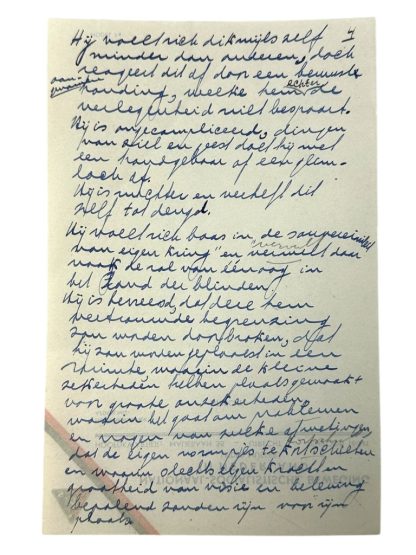 4
Hij voelt zich dikwijls zelf
minder dan anderen, doch
reageert dit af door een bewuste
aan-
gewende houding, welke hem echter de
verlegenheid niet bespaart.
Hij is ongecompliceerd, dingen
van ziel en geest doet hij met
een handgebaar of een glim-
lach af.
Hij is nuchter en verheft dit
zelf tot deugd.
Hij voelt zich baas in de "souvereiniteit
van eigen kring" en vervult dan
vaak de rol van éénoog in
het land der blinden.
Hij is bevreesd, dat deze hem
vertrouwde begrenzing
zou worden doorbroken, dat
hij zou worden geplaatst in een
ruimte waarin de kleine
zekerheden hebben plaatsgemaakt
voor groote onzekerheden,
waarin het gaat om problemen
en vragen van zulke afmetingen,
dat de eigen normen te kort schieten
en waarin slechts eigen kwaliteiten
grootheid van visie en beleving
bepalend zouden zijn voor zijn
plaats.